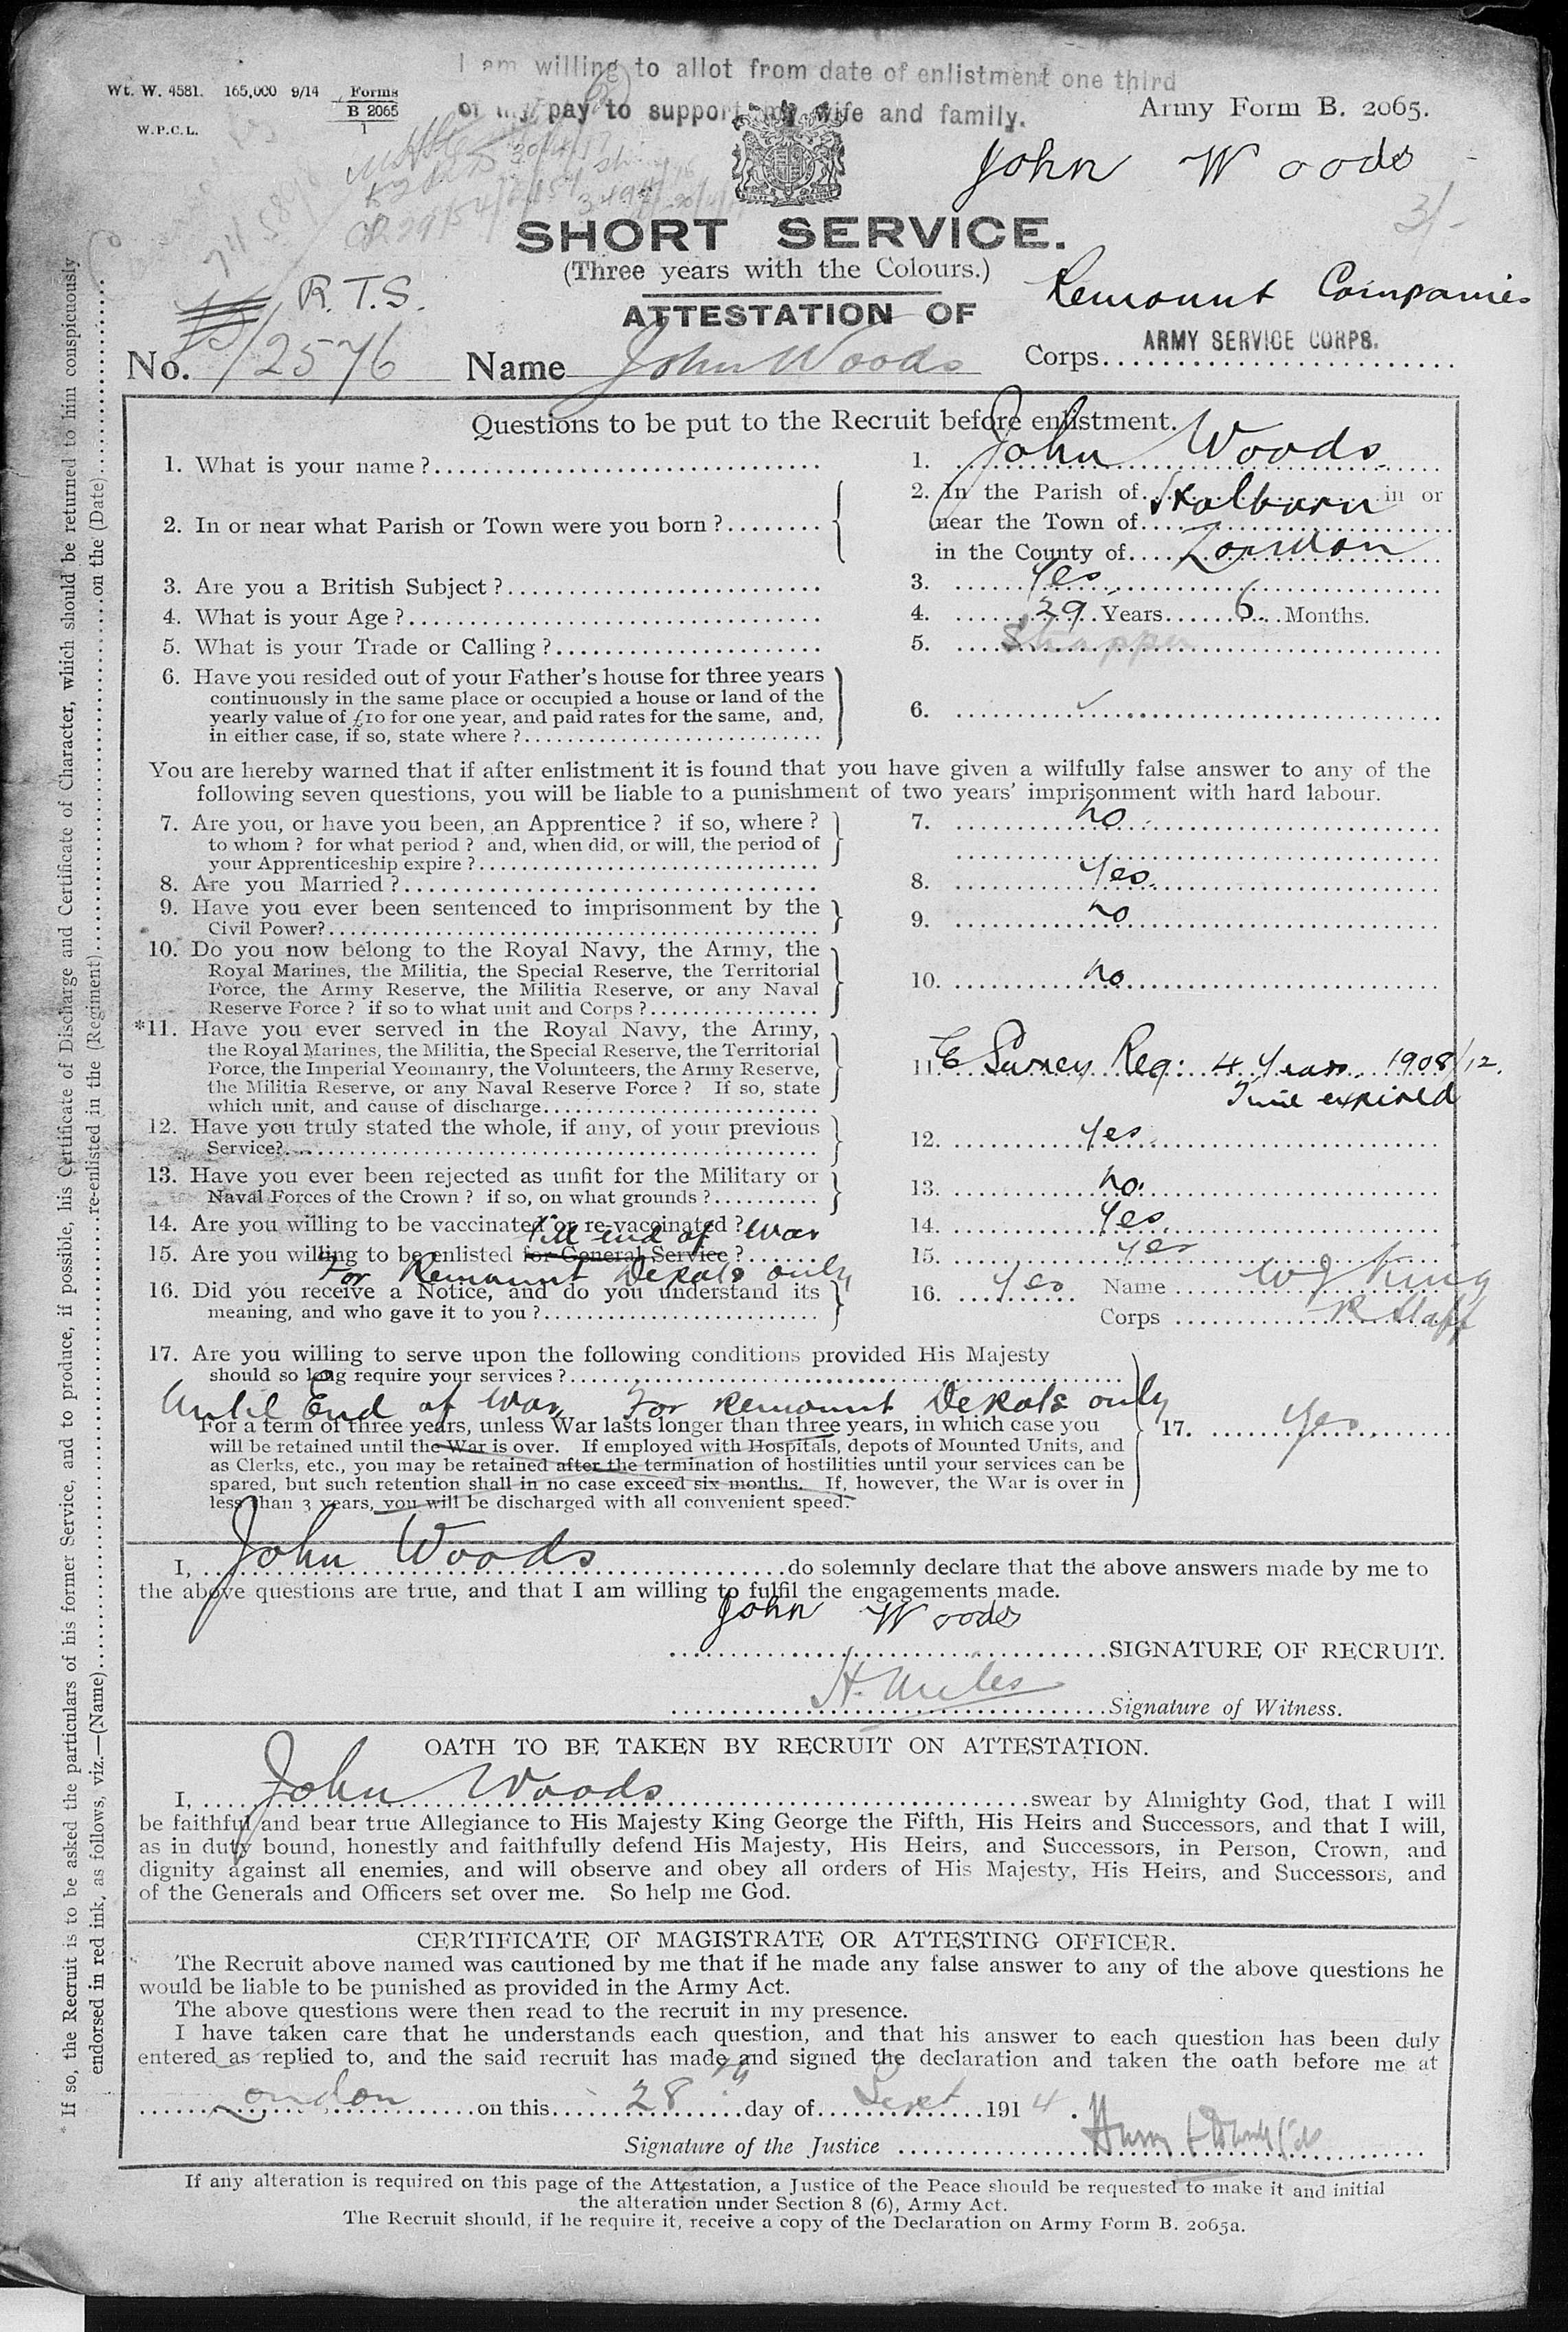 I am willing to allot from date of enlistment one third
of my pay to support my wife and family.
Wt. W. 4581. 165,000 9/14 Forms
B 2065
1
W.P.C.L.
Army Form B. 2065.
John Woods
3/-
SHORT SERVICE.
(Three years with the Colours.)
R.T.S.
Remount Companies
ATTESTATION OF
No. 2576 Name John Woods Corps ARMY SERVICE CORPS.
Questions to be put to the Recruit before enlistment.
1. What is your name? 1. John Woods
2. In or near what Parish or Town were you born? 2. In the Parish of Holborn in or
near the Town of
in the County of London
3. Are you a British Subject? 3. Yes
4. What is your Age? 4. 29 Years 6 Months.
5. What is your Trade or Calling? 5. Strapper
6. Have you resided out of your Father's house for three years
continuously in the same place or occupied a house or land of the
yearly value of £10 for one year, and paid rates for the same, and,
in either case, if so, state where? 6. ✓
You are hereby warned that if after enlistment it is found that you have given a wilfully false answer to any of the
following seven questions, you will be liable to a punishment of two years' imprisonment with hard labour.
7. Are you, or have you been, an Apprentice? if so, where? 7. no
to whom? for what period? and, when did, or will, the period of
your Apprenticeship expire?
8. Are you Married? 8. Yes.
9. Have you ever been sentenced to imprisonment by the
Civil Power? 9. no
10. Do you now belong to the Royal Navy, the Army, the
Royal Marines, the Militia, the Special Reserve, the Territorial
Force, the Army Reserve, the Militia Reserve, or any Naval
Reserve Force? if so to what unit and Corps? 10. no
*11. Have you ever served in the Royal Navy, the Army,
the Royal Marines, the Militia, the Special Reserve, the Territorial
Force, the Imperial Yeomanry, the Volunteers, the Army Reserve,
the Militia Reserve, or any Naval Reserve Force? If so, state
which unit, and cause of discharge 11. E Surrey Reg: 4 Years 1908/12.
Time expired
12. Have you truly stated the whole, if any, of your previous
Service? 12. Yes
13. Have you ever been rejected as unfit for the Military or
Naval Forces of the Crown? if so, on what grounds? 13. no.
14. Are you willing to be vaccinated or re-vaccinated? 14. Yes.
Till end of War
15. Are you willing to be enlisted for General Service? 15. Yes
For Remount Depots only
16. Did you receive a Notice, and do you understand its
meaning, and who gave it to you? 16. Yes Name W J King
Corps R Staff
17. Are you willing to serve upon the following conditions provided His Majesty
should so long require your services?
Until End of War For Remount Depots only
For a term of three years, unless War lasts longer than three years, in which case you 17. Yes.
will be retained until the War is over. If employed with Hospitals, depots of Mounted Units, and
as Clerks, etc., you may be retained after the termination of hostilities until your services can be
spared, but such retention shall in no case exceed six months. If, however, the War is over in
less than 3 years, you will be discharged with all convenient speed.
I, John Woods do solemnly declare that the above answers made by me to
the above questions are true, and that I am willing to fulfil the engagements made.
John Woods
SIGNATURE OF RECRUIT.
H. Miles
Signature of Witness.
OATH TO BE TAKEN BY RECRUIT ON ATTESTATION.
I, John Woods swear by Almighty God, that I will
be faithful and bear true Allegiance to His Majesty King George the Fifth, His Heirs and Successors, and that I will,
as in duty bound, honestly and faithfully defend His Majesty, His Heirs, and Successors, in Person, Crown, and
dignity against all enemies, and will observe and obey all orders of His Majesty, His Heirs, and Successors, and
of the Generals and Officers set over me. So help me God.
CERTIFICATE OF MAGISTRATE OR ATTESTING OFFICER.
The Recruit above named was cautioned by me that if he made any false answer to any of the above questions he
would be liable to be punished as provided in the Army Act.
The above questions were then read to the recruit in my presence.
I have taken care that he understands each question, and that his answer to each question has been duly
entered as replied to, and the said recruit has made and signed the declaration and taken the oath before me at
London on this 28th day of Sept 1914.
Signature of the Justice
If any alteration is required on this page of the Attestation, a Justice of the Peace should be requested to make it and initial
the alteration under Section 8 (6), Army Act.
The Recruit should, if he require it, receive a copy of the Declaration on Army Form B. 2065a.
If so, the Recruit is to be asked the particulars of his former Service, and to produce, if possible, his Certificate of Discharge and Certificate of Character, which should be returned to him conspicuously
endorsed in red ink, as follows, viz.—(Name) re-enlisted in the (Regiment) on the (Date)